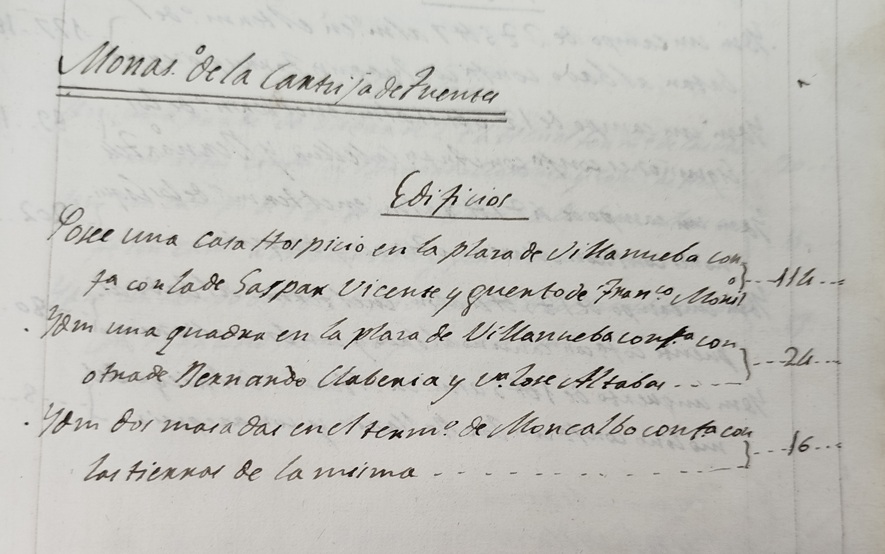 Monas.º de la Cartuja de Fuentes
Edificios
Posee una Casa Hospicio en la plaza de Villanueba con
fta con la de Gaspar Vicente y guerto de Franco. Moxil 114
Ydm una quadra en la plaza de Villanueba confta con
otra de Bernardo Claberia y va. Jose Altabas 24
Ydm dos masadas en el termo. de Moncalbo confta con
las tierras de la misma 16